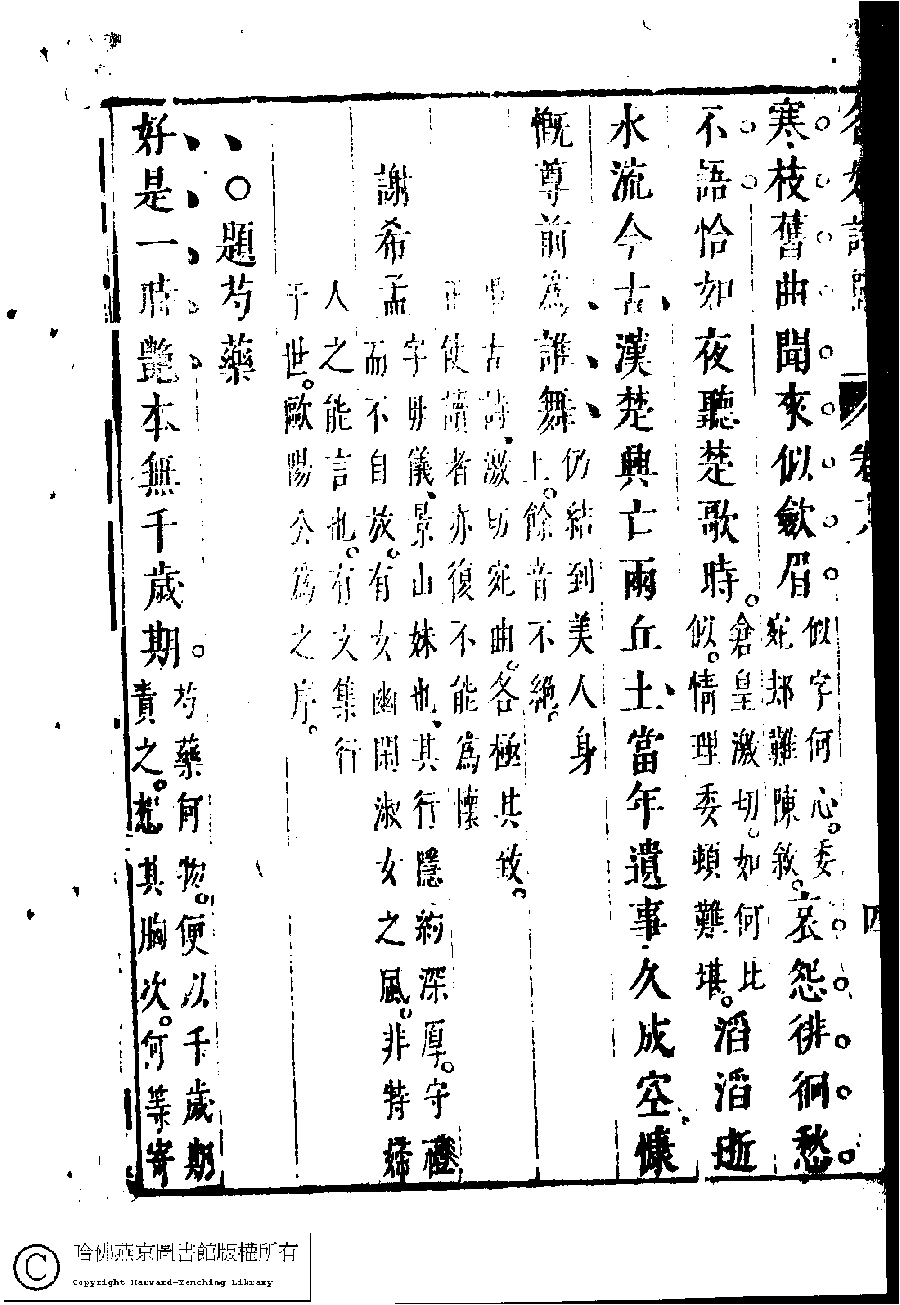 名媛詩歸
卷六
四
寒枝舊曲聞來似斂眉似字何心。委宛却難陳敘。哀怨徘徊愁
不語恰如夜聽楚歌時。倉皇激切。如何比似。情理委頓難堪。滔滔逝
水流今古漢楚興亡兩丘土當年遺事久成空慷
慨尊前為誰舞仍結到美人身上。餘音不絕。
古詩、激切宛曲。各極其致。
使讀者亦復不能為懷
謝希孟
字母儀、景山妹也、其行隱約深厚。守禮
而不自放。有女幽閑淑女之風。非特婦
人之能言也。有文集行
于世。歐陽公為之序。
○題芍藥
好是一時艷本無千歲期。芍藥何物。便以千歲期
責之。想其胸次。何等寄
哈佛燕京圖書館版權所有
Copyright Harvard-Yenching Library